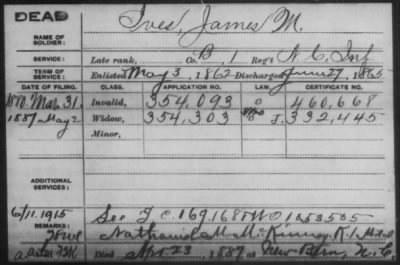 DEAD
Ives, James M.
NAME OF SOLDIER:
SERVICE: Late rank, Co. B, 1 Reg't N.C. Inf
TERM OF SERVICE: Enlisted May 3, 1862 Discharged June 27, 1865
DATE OF FILING. CLASS. APPLICATION NO. LAW. CERTIFICATE NO.
1880 Mar. 31. Invalid, 354,093 460,668
1887 May 2 Widow, 354,303 J. 332,445
Minor,
ADDITIONAL SERVICES:
6/11.1915 See
Nathaniel M. McKinney, R.I.
Died Apr 23, 1887 at New Bern, N.C.